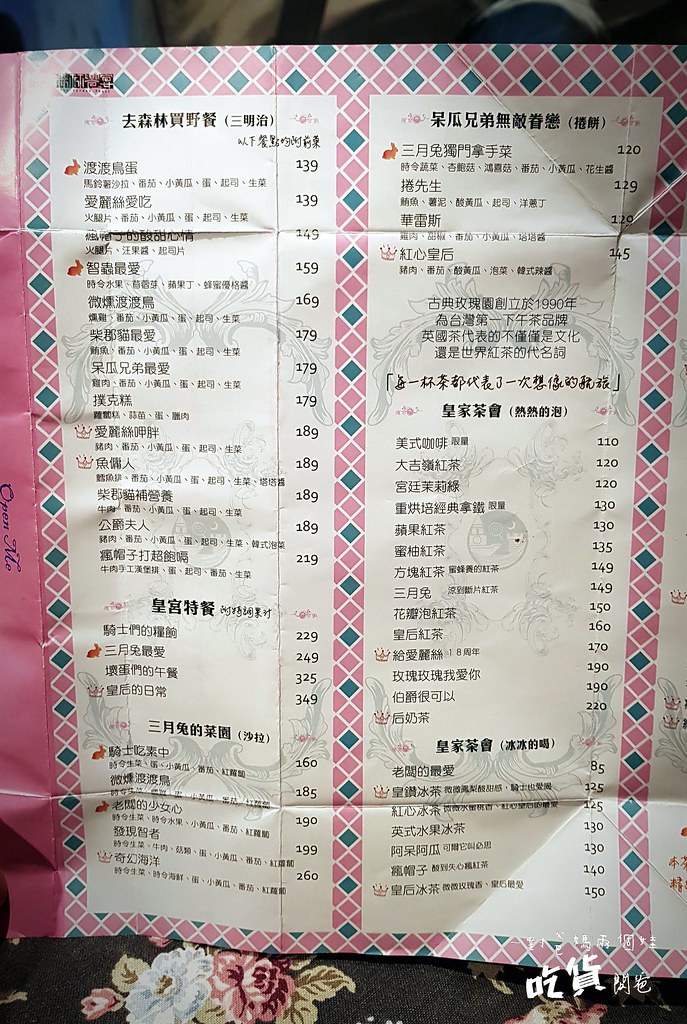 Open Me
去森林買野餐（三明治）
以下餐點均附前菜
渡渡鳥蛋 139
馬鈴薯沙拉、番茄、小黃瓜、蛋、起司、生菜
愛麗絲愛吃 139
火腿片、番茄、小黃瓜、蛋、起司、生菜
瘋帽子的酸甜心情 149
火腿片、芒果醬、起司片
智蟲最愛 159
時令水果、苜蓿芽、蘋果丁、蜂蜜優格醬
微燻渡渡鳥 169
燻雞、番茄、小黃瓜、蛋、起司、生菜
柴郡貓最愛 179
鮪魚、番茄、小黃瓜、蛋、起司、生菜
呆瓜兄弟最愛 179
雞肉、番茄、小黃瓜、蛋、起司、生菜
撲克糕 179
蘿蔔糕、蒜苗、蛋、臘肉
愛麗絲呷胖 189
豬肉、番茄、小黃瓜、蛋、起司、生菜
魚傭人 189
鱈魚排、番茄、小黃瓜、蛋、起司、生菜、塔塔醬
柴郡貓補營養 189
牛肉、番茄、小黃瓜、蛋、起司、生菜
公爵夫人 189
豬肉、番茄、小黃瓜、蛋、起司、生菜、韓式泡菜
瘋帽子打超飽嗝 219
牛肉手工漢堡排、蛋、起司、番茄、生菜
皇宮特餐 附特調果汁
騎士們的糧餉 229
三月兔最愛 249
壞蛋們的午餐 325
皇后的日常 349
三月兔的菜園（沙拉）
騎士吃素中 160
時令生菜、蛋、小黃瓜、番茄、紅蘿蔔
微燻渡渡鳥 185
老闆的少女心 190
時令生菜、時令水果、小黃瓜、番茄、紅蘿蔔
發現智者 190
時令生菜、牛肉、菇類、蛋、小黃瓜、番茄、紅蘿蔔
奇幻海洋 260
時令生菜、時令海鮮、蛋、小黃瓜、番茄、紅蘿蔔
呆瓜兄弟無敵眷戀（捲餅）
三月兔獨門拿手菜 120
時令蔬菜、杏鮑菇、鴻喜菇、番茄、小黃瓜、花生醬
捲先生 129
鮪魚、薯泥、酸黃瓜、起司、洋蔥丁
華雷斯 120
雞肉、甜椒、番茄、小黃瓜、塔塔醬
紅心皇后 145
豬肉、番茄、酸黃瓜、泡菜、韓式辣醬
古典玫瑰園創立於1990年
為台灣第一下午茶品牌
英國茶代表的不僅僅是文化
還是世界紅茶的代名詞
「每一杯茶都代表了一次想像的航旅」
皇家茶會（熱熱的泡）
美式咖啡 限量 110
大吉嶺紅茶 120
宮廷茉莉綠 120
重烘培經典拿鐵 限量 130
蘋果紅茶 130
蜜柚紅茶 135
方塊紅茶 蜜蜂養的紅茶 149
三月兔 涼到斷片紅茶 149
花瓣泡紅茶 150
皇后紅茶 160
給愛麗絲 18周年 170
玫瑰玫瑰我愛你 190
伯爵很可以 190
后奶茶 220
皇家茶會（冰冰的喝）
老闆的最愛 85
皇鑽冰茶 微微鳳梨酸甜感，騎士也愛喝 125
紅心冰茶 微微水蜜桃香，紅心皇后的最愛 125
英式水果冰茶 130
阿呆阿瓜 可爾它叫必思 130
瘋帽子 酸到失心瘋紅茶 140
皇后冰茶 微微玫瑰香、皇后最愛 150
一對爸媽兩個娃
吃貨 閔爸